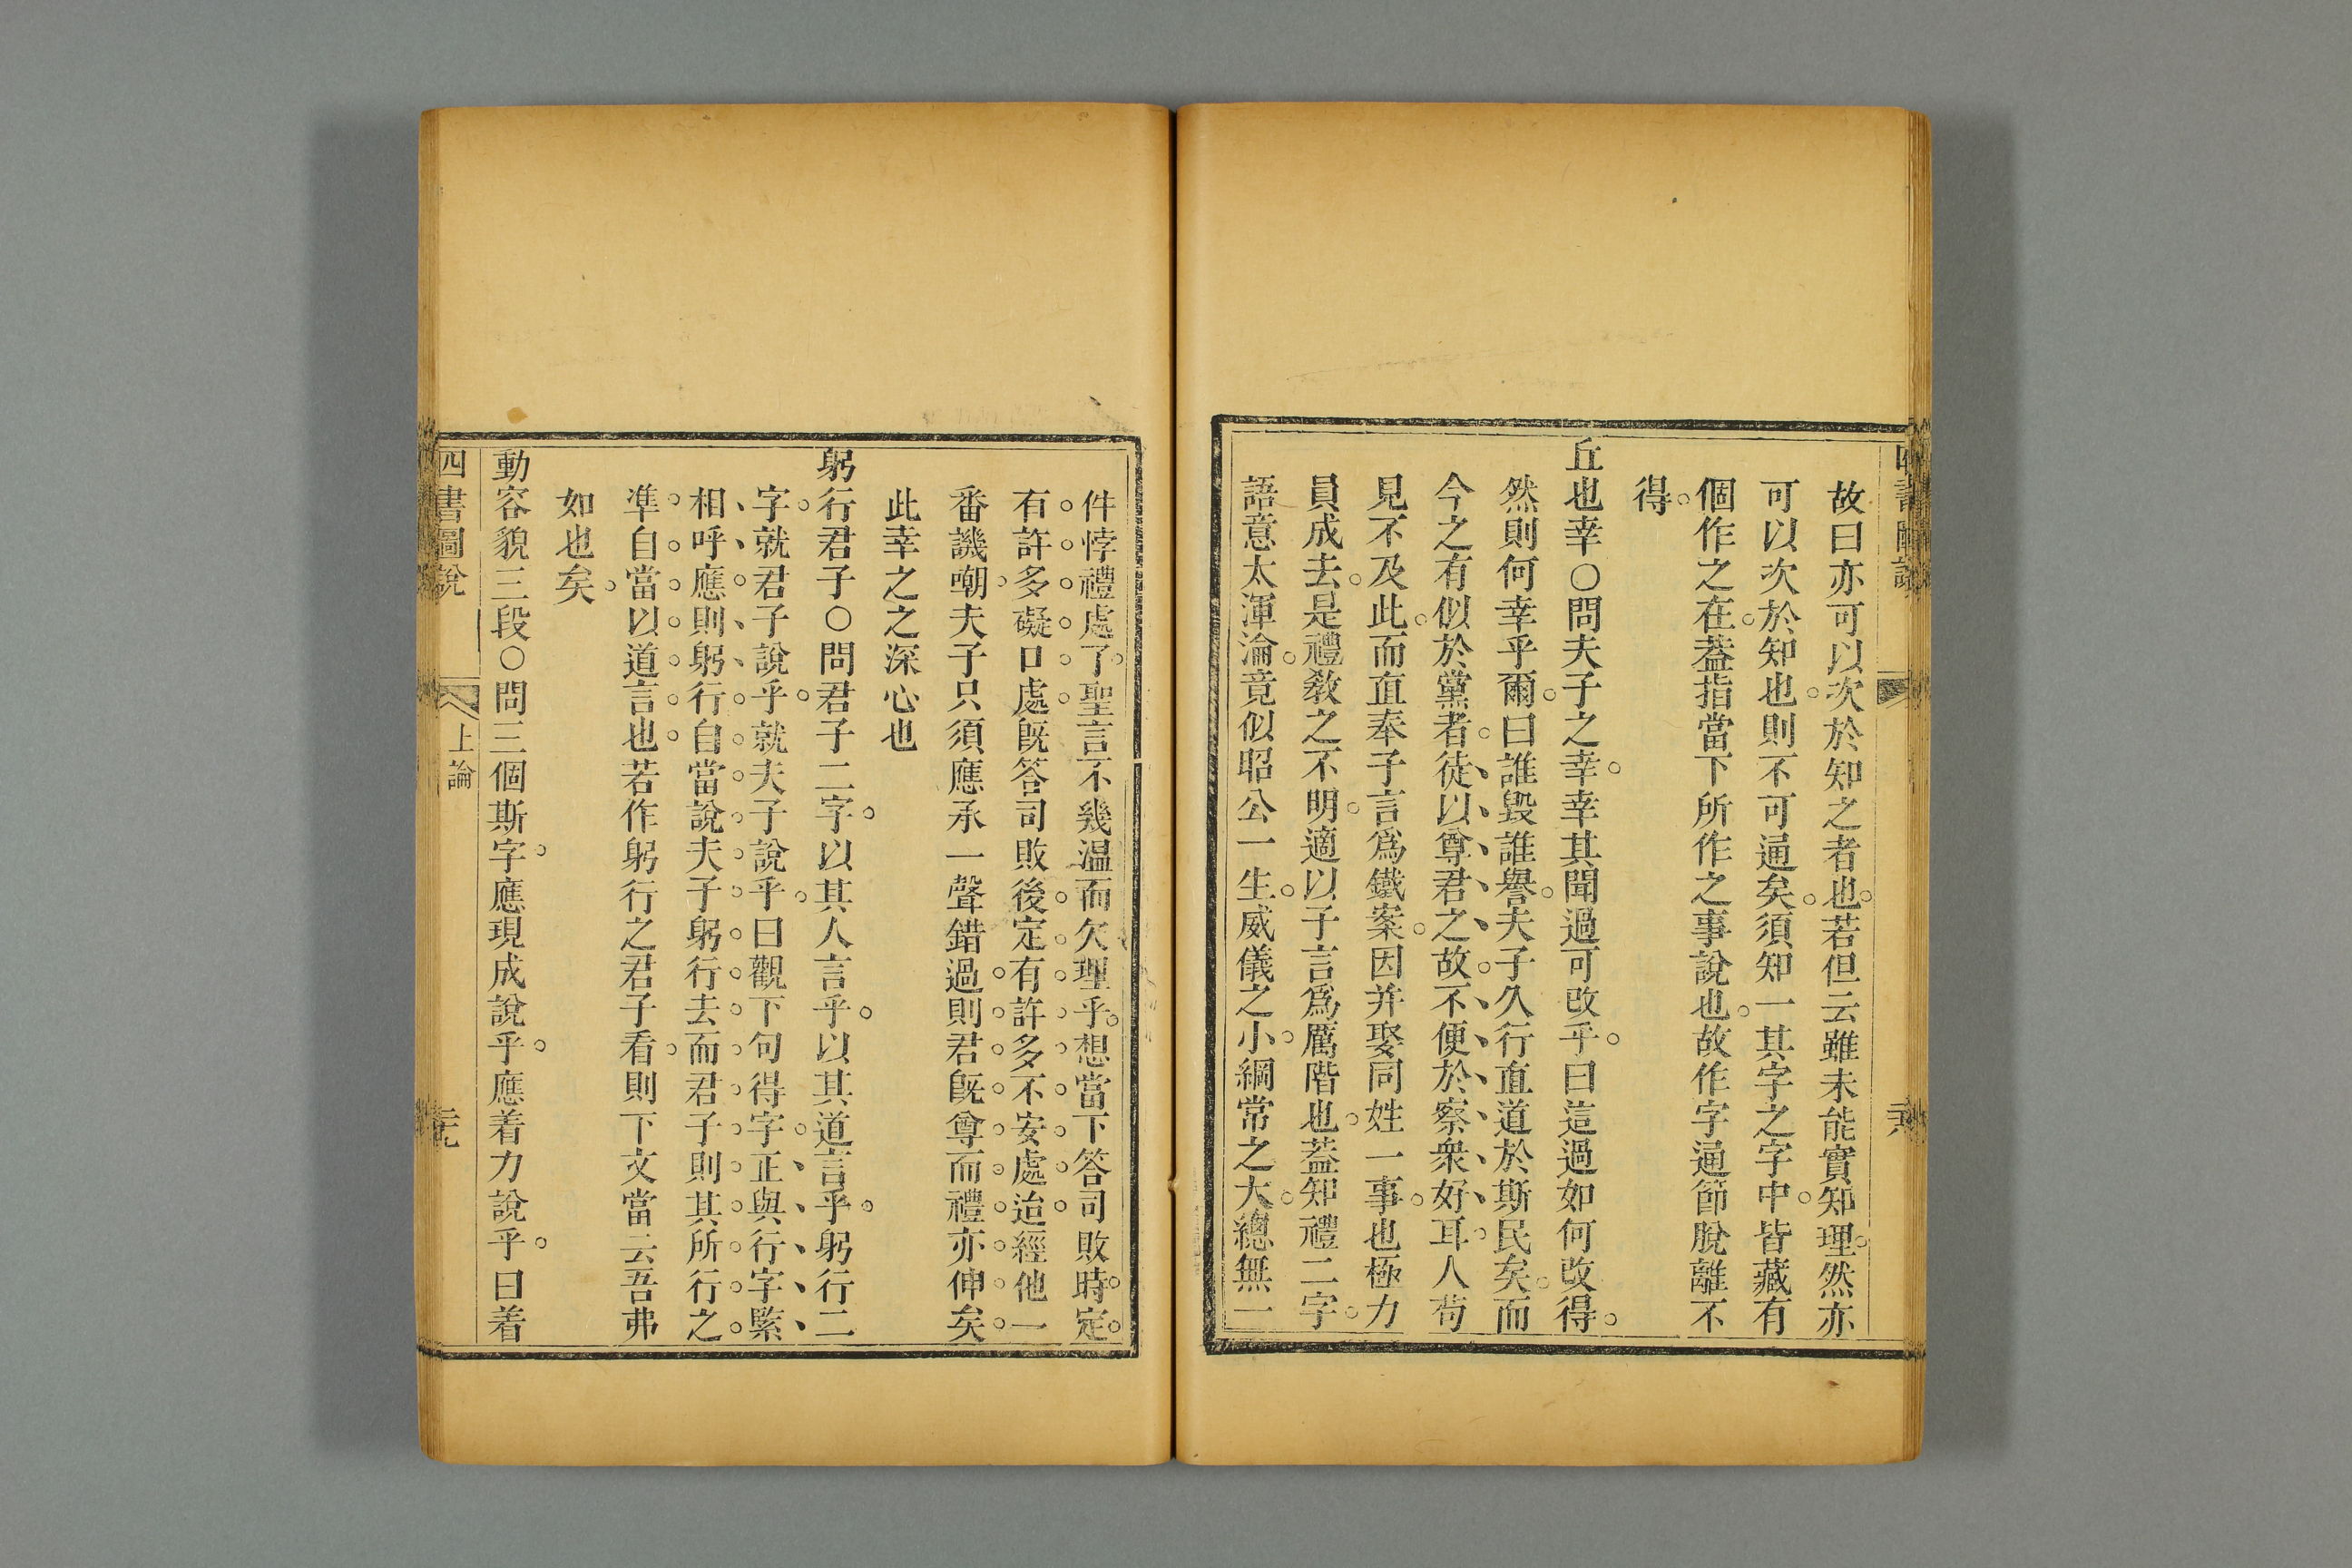 四書圖說
六
故曰亦可以次於知之者也若但云雖未能實知理然亦
可以次於知也則不可通矣須知一其字之字中皆藏有
個作之在葢指當下所作之事說也故作字通節脫離不
得
丘也幸○問夫子之幸幸其聞過可改乎曰這過如何改得
然則何幸乎爾曰誰毀誰譽夫子久行直道於斯民矣而
今之有似於黨者徒以尊君之故不便於察衆好耳人苟
見不及此而直奉子言爲鐵案因并娶同姓一事也極力
員成去是禮敎之不明適以子言爲厲階也葢知禮二字
語意太渾淪竟似昭公一生威儀之小綱常之大總無一
件悖禮處了聖言不幾温而欠理乎想當下答司敗時定
有許多礙口處旣答司敗後定有許多不安處迨經他一
番譏嘲夫子只須應承一聲錯過則君旣尊而禮亦伸矣
此幸之之深心也
躬行君子○問君子二字以其人言乎以其道言乎躬行二
字就君子說乎就夫子說乎曰觀下句得字正與行字緊
相呼應則躬行自當說夫子躬行去而君子則其所行之
準自當以道言也若作躬行之君子看則下文當云吾弗
如也矣
動容貌三段○問三個斯字應現成說乎應着力說乎曰着
四書圖說
上論
元